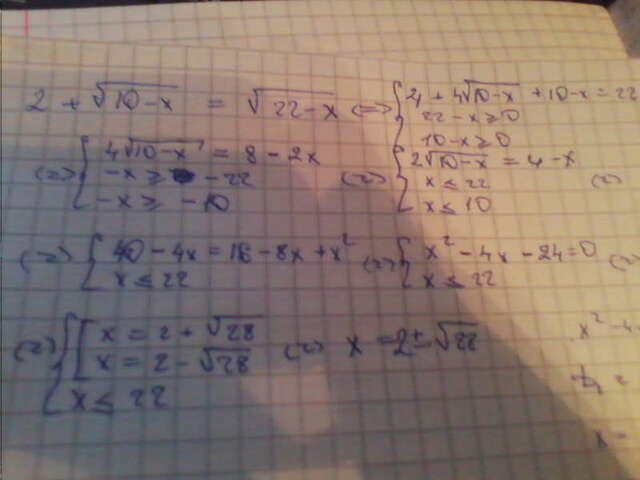 2 + √10-x = √22-x <=> { 4 + 4√10-x + 10-x = 22
22 - x ≥ 0
10-x ≥ 0
<=> { 4√10-x = 8 - 2x
-x ≥ -22
-x ≥ -10
<=> { 2√10-x = 4-x
x ≤ 22
x ≤ 10
<=>
<=> { 40 - 4x = 16 - 8x + x²
x ≤ 22
<=> { x² - 4x - 24 = 0
x ≤ 22
<=> { [ x = 2 + √28
x = 2 - √28
x ≤ 22
<=> x = 2 ± √22
x² - 4
x =